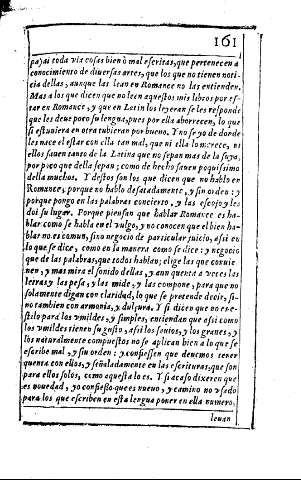 161
pa) ai toda via cosas bien ò mal escritas, que pertenecen a
conocimiento de diuersas artes, que los que no tienen noti-
cia dellas, aunque las lean en Romance no las entienden.
Mas a los que dicen que no leen aquestos mis libros por es-
tar en Romance, y que en Latin los leyeran se les responde
que les deue poco su lengua, pues por ella aborrecen, lo que
si estuuiera en otra tubieran por bueno. Y no se yo de donde
les nace el estar con ella tan mal, que ni ella lo merece, ni
ellos sauen tanto de la Latina que no sepan mas de la suya,
por poco que della sepan; como de hecho sauen poquissimo
della muchos. Y destos son los que dicen que no hablo en
Romance, porque no hablo desatadamente, y sin orden: y
porque pongo en las palabras concierto, y las escojo y les
doi su lugar. Porque piensan que hablar Romance es ha-
blar como se habla en el vulgo, y no conocen que el bien ha-
blar no es comun, sino negocio de particular juicio, assi en
lo que se dice, como en la manera como se dice: y negocio
que de las palabras, que todos hablan; elige las que conuie-
nen, y mas mira el sonido dellas, y aun quenta a veces las
letras y las pesa, y las mide, y las compone, para que no
solamente digan con claridad, lo que se pretende decir, si-
no tambien con armonia, y dulçura. Y si dicen que no es es-
tilo para los vmildes, y simples, entiendan que assi como
los vmildes tienen su gusto, assi los sauios, y los graues, y
los naturalmente compuestos no se aplican bien a lo que se
escribe mal, y sin orden: y confiessen que deuemos tener
quenta con ellos, y señaladamente en las escrituras, que son
para ellos solos, como aquesta lo es. Y si acaso dixeren que
es nouedad, yo confiesso que es nueuo, y camino no vsado
para los que escriben en esta lengua poner en ella numero,
leuan